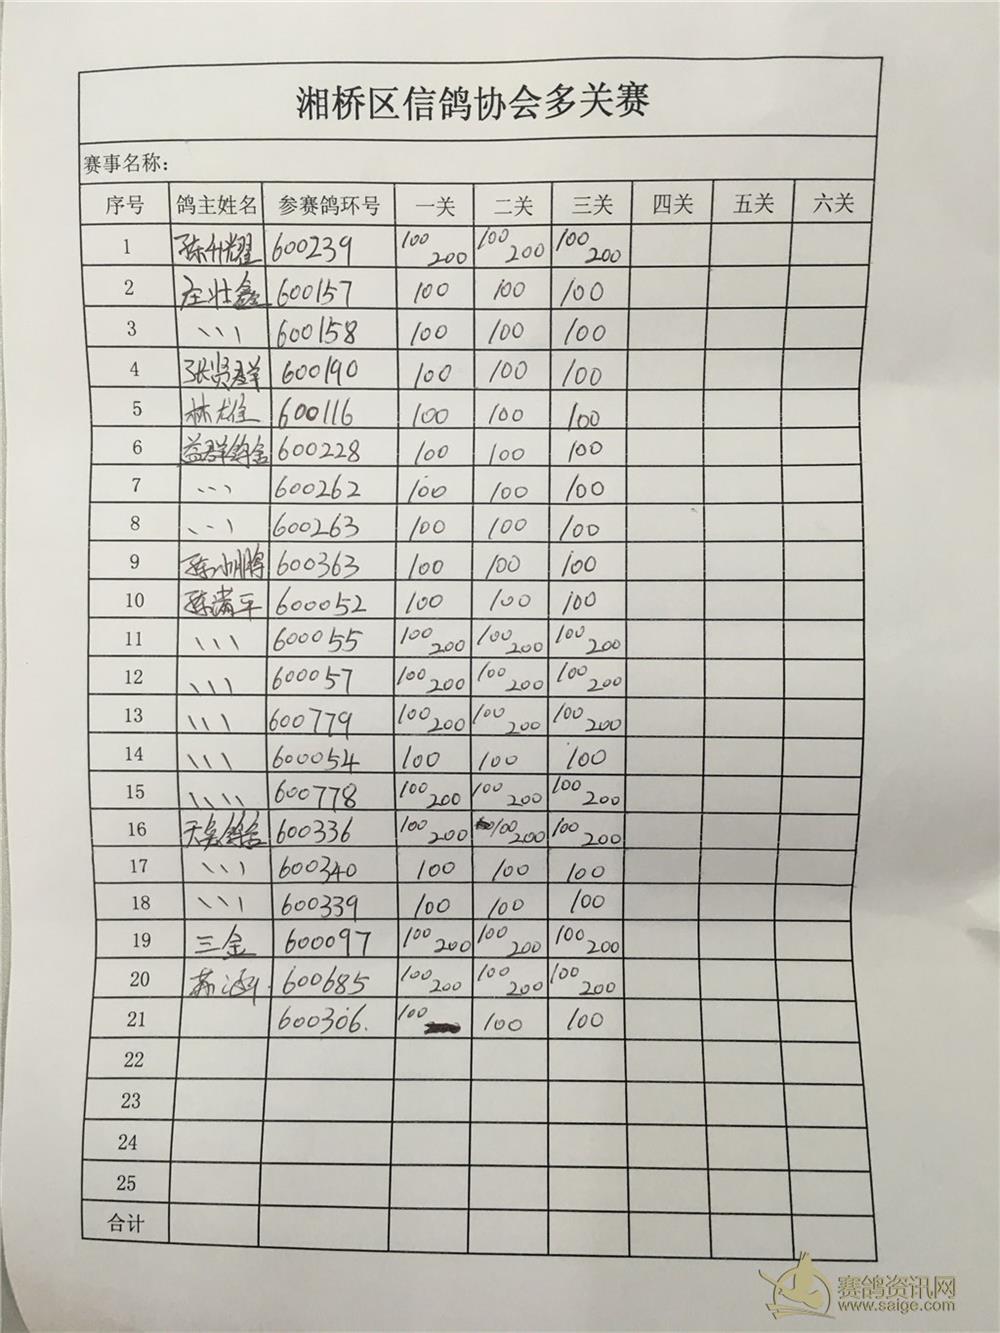 湘桥区信鸽协会多关赛
赛事名称：
序号 鸽主姓名 参赛鸽环号 一关 二关 三关 四关 五关 六关
1 陈升耀 600239 100 200 100 200 100 200
2 庄壮鑫 600157 100 100 100
3 、、、 600158 100 100 100
4 张贤群 600190 100 100 100
5 林雄 600116 100 100 100
6 益群鸽舍 600228 100 100 100
7 、、、 600262 100 100 100
8 、、、 600263 100 100 100
9 陈小鹏 600363 100 100 100
10 陈满平 600052 100 100 100
11 、、、 600055 100 200 100 200 100 200
12 、、、 600057 100 200 100 200 100 200
13 、、、 600779 100 200 100 200 100 200
14 、、、 600054 100 100 100
15 、、、、 600778 100 200 100 200 100 200
16 鸽舍 600336 100 200 100 200 100 200
17 、、、 600340 100 100 100
18 、、、 600339 100 100 100
19 三金 600097 100 200 100 200 100 200
20 600685 100 200 100 200 100 200
21 600306. 100 100 100
22
23
24
25
合计
赛鸽资讯网
www.saige.com